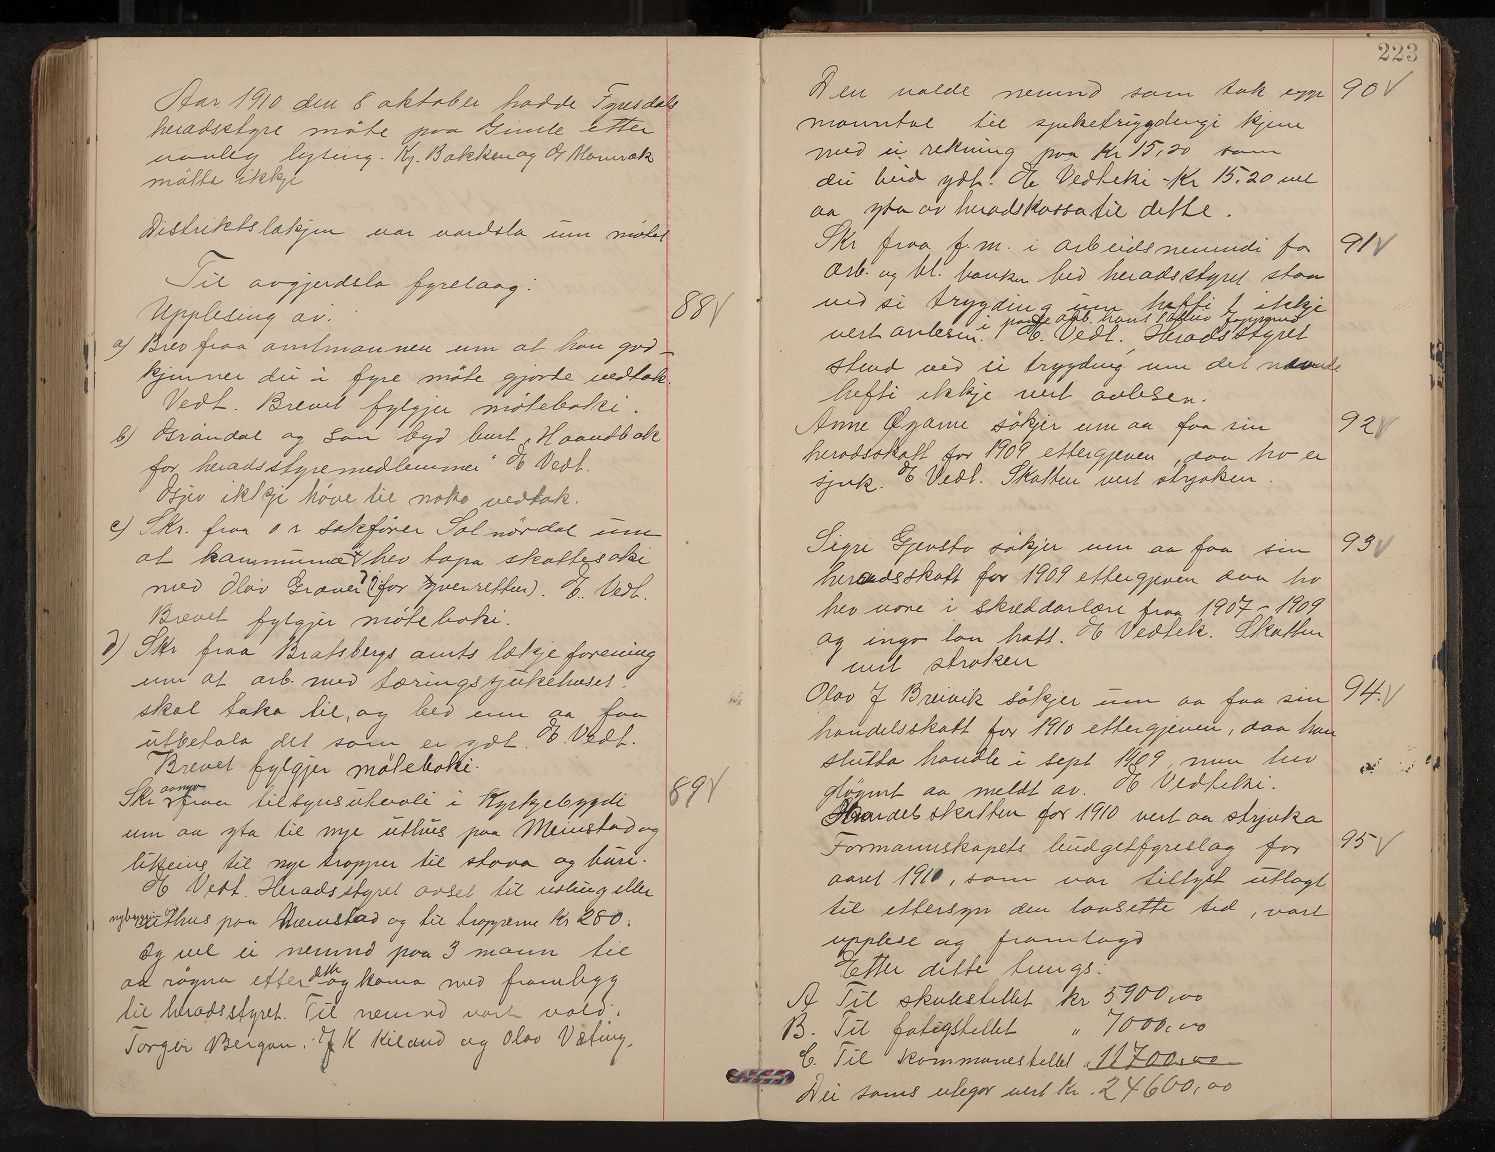 Aar 1910 den 8 oktober hadde Fyresdals
heradsstyre møte paa Gimle etter
vanleg lysing. Kj. Bakken og O. Momrak
møtte ikkje
Distriktslækjen var vardsla um møtet
Til avgjerdsla fyrelaag:
88
Upplesing av:
a) Brev fraa amtmannen um at han god-
kjenner dei i fyre møte gjorde vedtak.
Vedt. Brevet fylgjer møteboki.
b) Grøndal og Søn byd burt "Haandbok
for heradsstyremedlemmer" E. Vedt.
Gjev ikkje høve til noko vedtak.
c) Skr. fraa o r sakfører Solnørdal um
at kommuna hev tapa skattesaki
med Olav Graver (for yverretten). E. Vedt.
Brevet fylgjer møteboki.
d) Skr fraa Bratsbergs amts lækjeforening
um at arb. med tæringssjukehuset
skal taka til, og bed um aa faa
utbetala det som er ydt. E. Vedt.
Brevet fylgjer møteboki.
89
Skr fraa tilsynsutvali i Kyrkjebygdi
um aa yta til nye uthus paa Memstad og
likeins til nye tropper til stova og buri.
E Vedt. Heradsstyret avset til vøling eller
nybygging av uthus paa Momstad og til tropperne Kr 280.
Og vel ei nemnd paa 3 mann til
aa røgna etter dette og koma med framlegg
til heradsstyret. Til nemnd vart vald:
Torgeir Bergan, J K Kiland og Olav Væting.
223
90
Den valde nemnd som tok upp
manntal til sjuketrygdingi kjem
med ei rekning paa Kr 15,20 som
dei beid ydt. E Vedteki Kr 15.20 vel
aa yta av heradskassa til dette.
91
Skr fraa f.m. i arbeidsnemndi for
arb. og bl. banken bed heradsstyret staa
ved si trygding um hefti ikkje
vert avlesen. E. Vedt. Heradsstyret
stend ved si trygding um det nemnde
hefti ikkje vert avlesen.
92
Anne Øyane søkjer um aa faa sin
heradsskatt for 1909 ettergjeven daa ho er
sjuk. E Vedt. Skatten vert stroken.
93
Sigri Gjevsto søkjer um aa faa sin
heradsskatt for 1909 ettergjeven daa ho
hev vore i skreddarlære fraa 1907-1909
og inga løn havt. E Vedtek. Skatten
vert stroken
94.
Olav J Breivik søkjer um aa faa sin
handelsskatt for 1910 ettergjeven, daa han
slutta handle i sept 1909, men hev
gløymt aa meldt av. E Vedteki.
Handelsskatten for 1910 vert aa stryka
95
Formannskapets budgetfyreslag for
aaret 1910, som var tillyst utlagt
til ettersyn den lovsette tid, vart
upplese og framlagd
Etter dette tungs:
A Til skulestellet kr 5900,00
B. Til fatigstellet " 7000,00
C. Til kommunestellet " 11700,00
Dei sams utlegor vert Kr. 24600,00